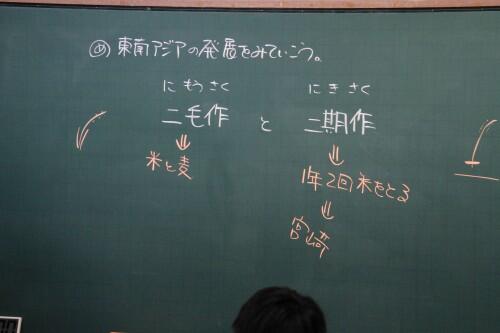 め 東南アジアの発展をみていこう。
にもうさく にきさく
二毛作 と 二期作
米と麦 1年2回米をとる
宮崎